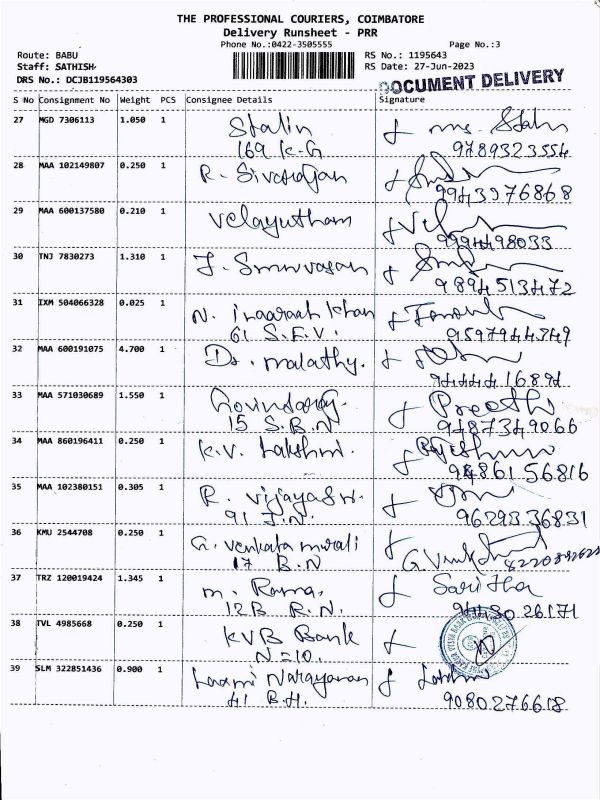 THE PROFESSIONAL COURIERS, COIMBATORE
Delivery Runsheet - PRR
Phone No.:0422-3505555 Page No.:3
Route: BABU RS No.: 1195643
Staff: SATHISH RS Date: 27-Jun-2023
DRS No.: DCJB119564303 DOCUMENT DELIVERY
S No Consignment No Weight PCS Consignee Details Signature
27 MGD 7306113 1.050 1 Stalin
169 K-G 9789323554
28 MAA 102149807 0.250 1 R. Sivarajan
9943976868
29 MAA 600137580 0.210 1 Velayutham
9994498033
30 TNJ 7830273 1.310 1 J. Srinivasan
9894513472
31 IXM 504066328 0.025 1 N. Inaaraah Khan
61 S.F.V. 9597944349
32 MAA 600191075 4.700 1 Dr. Malathy.
9444416891
33 MAA 571030689 1.550 1 Govindaraj. Preethi
15 S.B.N 9487349066
34 MAA 860196411 0.250 1 K.V. Lakshmi.
9486156816
35 MAA 102380151 0.305 1 R. Vijayasri.
91 J.N. 9629336831
36 KMU 2544708 0.250 1 G. Venkata Murali
17 B.N
37 TRZ 120019424 1.345 1 M. Rama, Saritha
12B R.N. 9443026171
38 TVL 4985668 0.250 1 KVB Bank
N=10.
39 SLM 322851436 0.900 1 Laxmi Narayanan
41 B.H. 9080276618